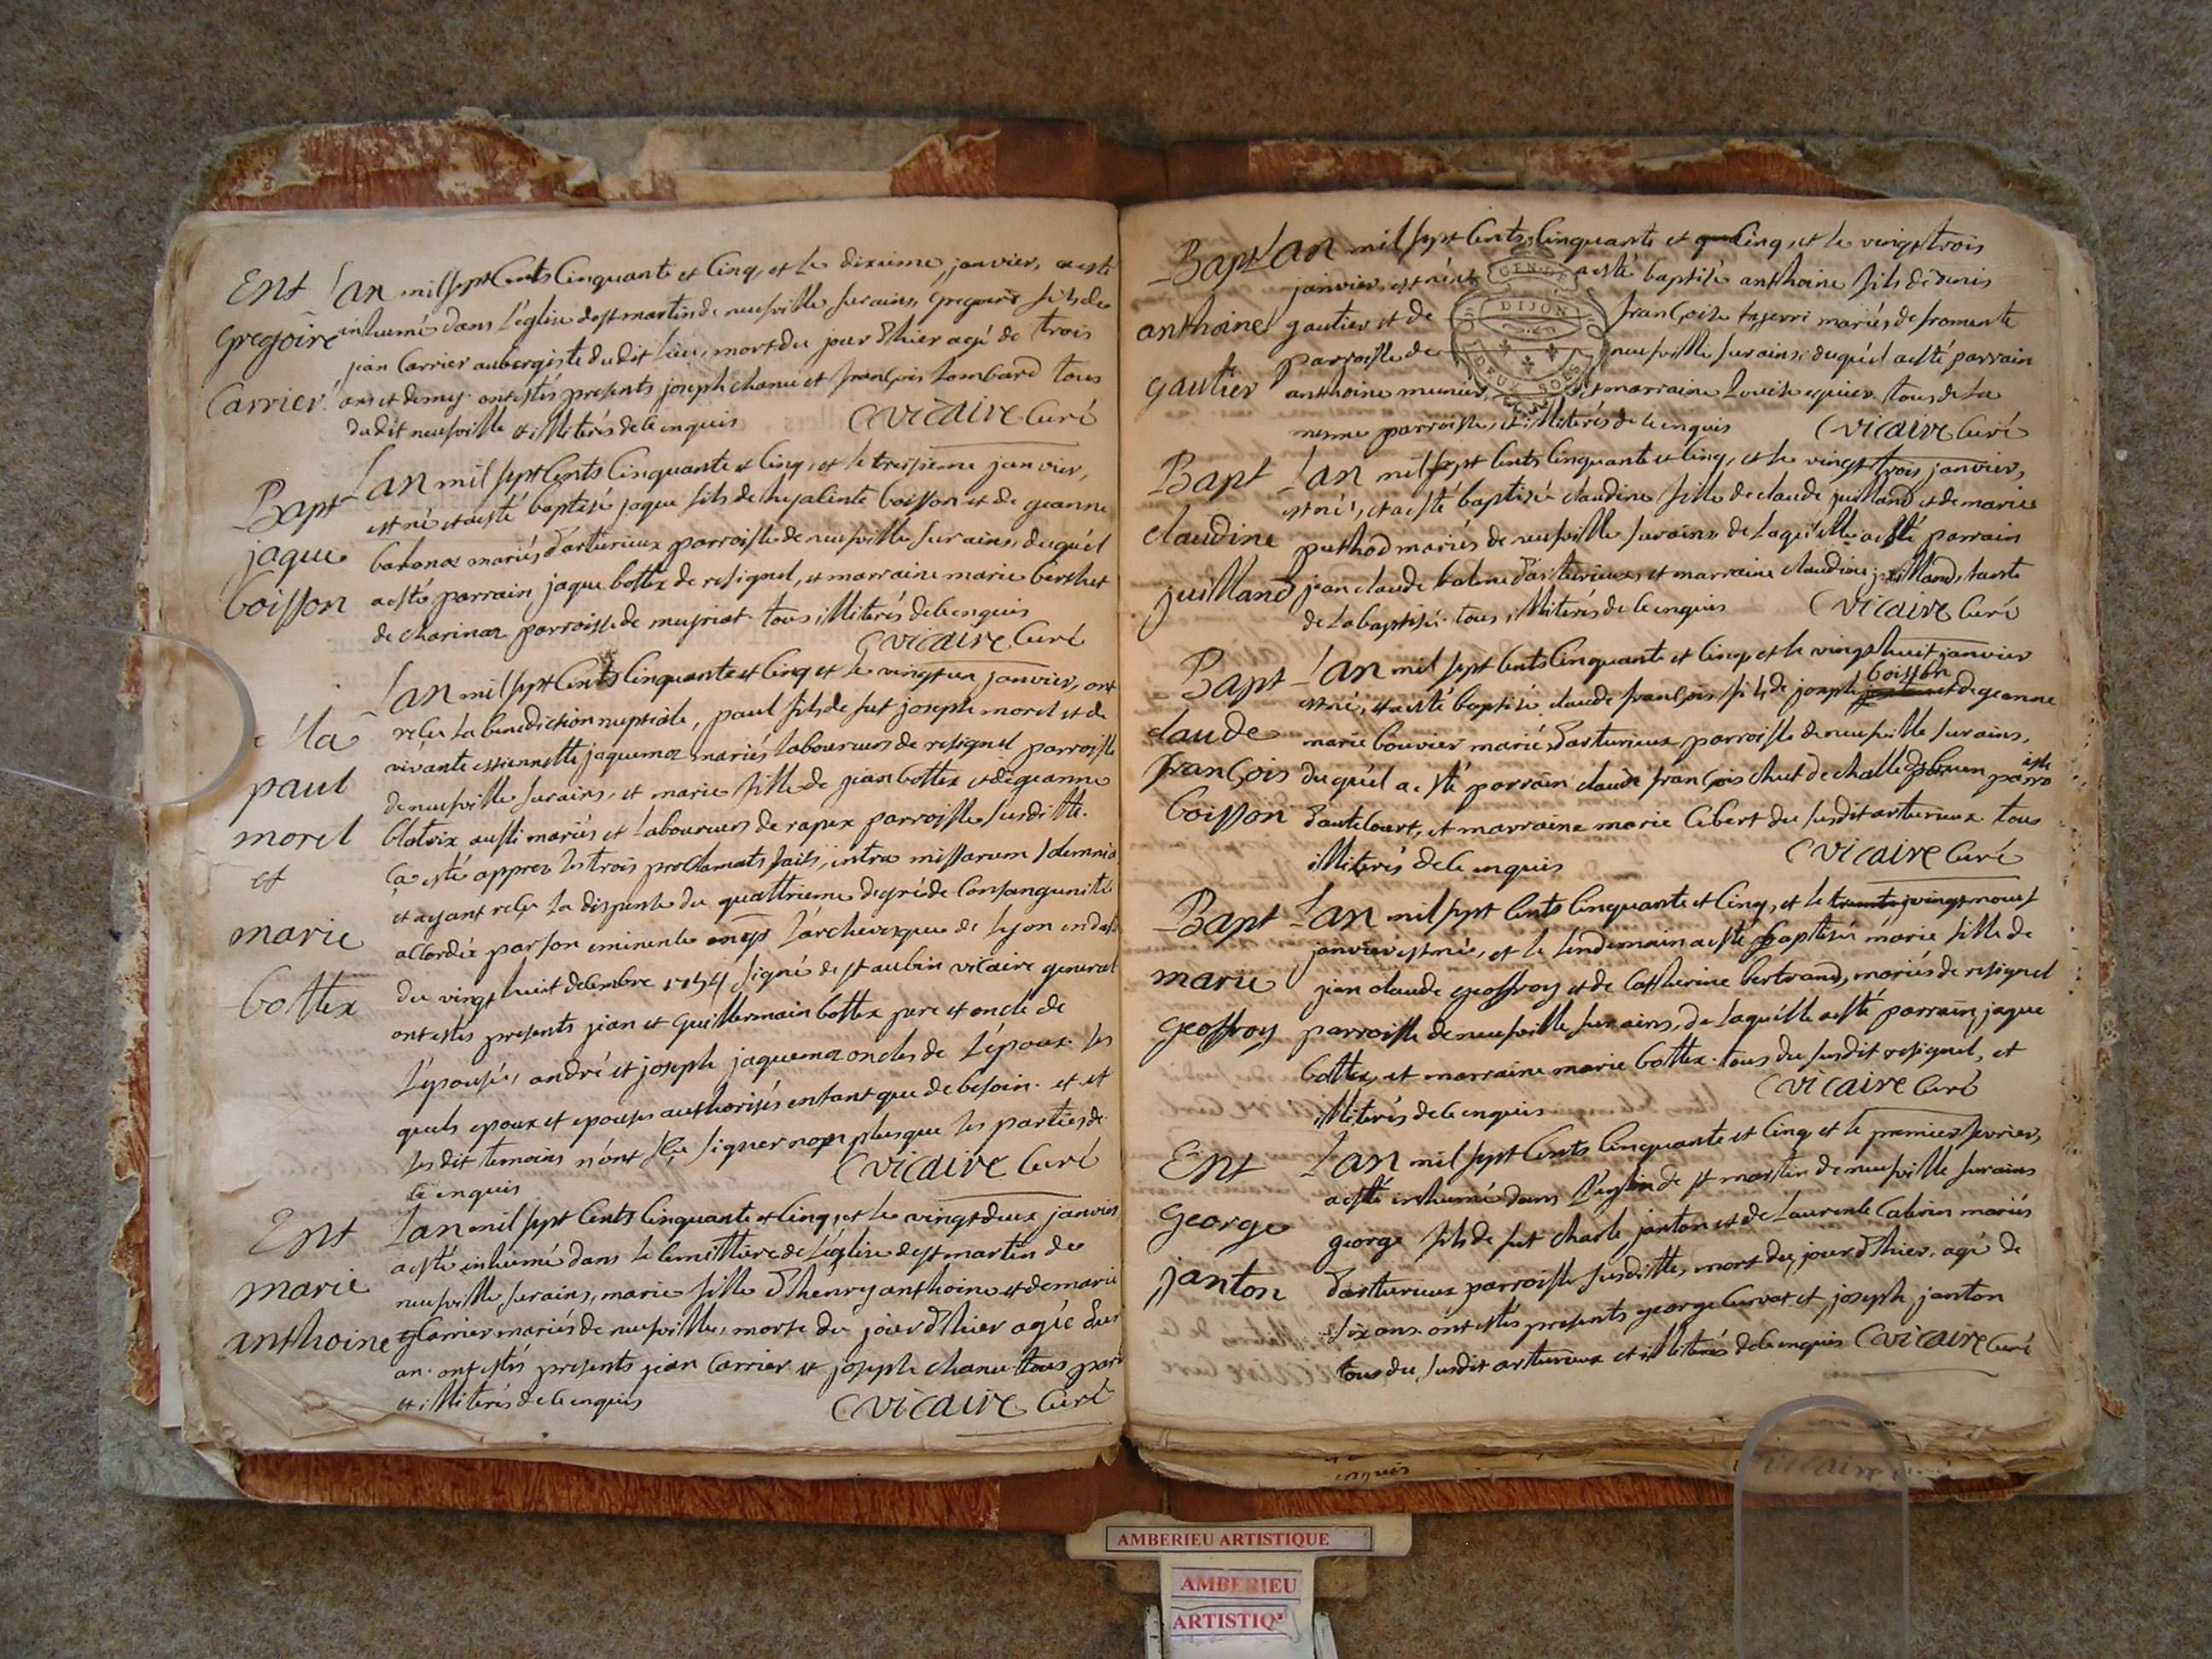 Ent
gregoire
Carrier
L'an mil sept Cents Cinquante et Cinq, et le dixieme janvier, a esté
inhumé dans l'eglise de st martin de neufville surains, gregoire fils de
jean Carrier aubergiste dudit lieu, mort du jour d'hier agé de trois
ans et demy. ont estés presents joseph chanu et françois Lombard tous
dudit neufville et illiterés de ce enquis
Vicaire Curé
Bapt
jaque
Coisson
L'an mil sept Cents Cinquante et Cinq, et le treisieme janvier,
est né et a esté baptisé jaque fils de hyalinte Coisson et de jeanne
mariés d'arturieux parroisse de neufville surains, duquel
a esté parrain jaque bottex de resignel, et marraine marie berthet
de charinaz parroisse de meyriat. tous illiterés de ce enquis
Vicaire Curé
paul
morel
et
marie
bottex
L'an mil sept Cents Cinquante et Cinq et le vingt un janvier, ont
reçu la benediction nuptiale, paul fils de fut joseph morel et de
vivante estiennette jaquemaz mariés laboureurs de resignel parroisse
de neufville surains, et marie fille de jean bottex et de jeanne
blatrix aussi mariés et laboureurs de rapex parroisse susditte.
Ca esté apprez les trois proclamats faits, intra missarum solemnia
et ayant reçu la dispense du quattrieme degré de Consanguinité
accordée par son eminence l'archevesque de Lyon en date
du vingt huit decembre 1754 signé de st aubin vicaire general
ont estés presents jean et guillermain bottex pere et oncle de
l'epouse, andré et joseph jaquemaz oncles de l'epoux. les
quels epoux et epouse authorisés entant que de besoin. et et
les dit temoins n'ont sçu signer non plus que les parties de
ce enquis
Vicaire Curé
Ent
marie
anthoine
L'an mil sept Cents Cinquante et Cinq, et le vingt deux janvier
a esté inhumé dans le Cemettiere de l'église de st martin de
neufville surains, marie fille d'henry anthoine et de marie
Carrier mariés de neufville, morte du jour d'hier agée d'un
an. ont estés presents jean Carrier et joseph chanu tous
et illiterés de ce enquis
Vicaire Curé
Bapt
anthoine
gautier
L'an mil sept Cents Cinquante et Cinq, et le vingt trois
janvier, est né et a esté baptisé anthoine fils de denis
gautier et de françoise mariés de fromente
parroisse de neufville surains, duquel a esté parrain
anthoine munier et marraine Louise tous de la
mesme parroisse, et illiterés de ce enquis
Vicaire Curé
GEN. DE
DIJON
DEUX SOLS
Bapt
claudine
juilland
L'an mil sept Cents Cinquante et Cinq, et le vingt trois janvier,
est né, et a esté baptisée claudine fille de claude juilland et de marie
puthod mariés de neufville surains, de laquelle a esté parrain
jean claude d'arturieux, et marraine claudine juilland, tante
de la baptisé. tous illiterés de ce enquis
Vicaire Curé
Bapt
claude
françois
Coisson
L'an mil sept Cents Cinquante et Cinq et le vingt huit janvier
est né, et a esté baptisé claude françois fils de joseph Coisson et de jeanne
marie bouvier mariés d'arturieux parroisse de neufville surains,
duquel a esté parrain claude françois chut de parroisse
d'autecourt, et marraine marie Cebert du susdit arturieux. tous
illiterés de ce enquis
Vicaire Curé
Bapt
marie
geoffroy
L'an mil sept Cents Cinquante et Cinq, et le trente vingt neuf
janvier est née, et le lendemain a esté baptisée marie fille de
jean claude geoffroy et de Catherine bertrand, mariés de resignel
parroisse de neufville surains, de laquelle a esté parrain jaque
bottex, et marraine marie bottex. tous du susdit resignel, et
illiterés de ce enquis
Vicaire Curé
Ent
george
janton
L'an mil sept Cents Cinquante et Cinq et le premier fevrier,
a esté inhumé dans l'eglise de st martin de neufville surains
george fils de fut charle janton et de Laurence Cabrin mariés
d'arturieux parroisse susditte, mort du jour d'hier, agé de
six ans. ont estés presents george Curvat et joseph janton
tous du susdit arturieux et illiterés de ce enquis Vicaire Curé
enquis
AMBERIEU ARTISTIQUE
AMBERIEU
ARTISTIQ